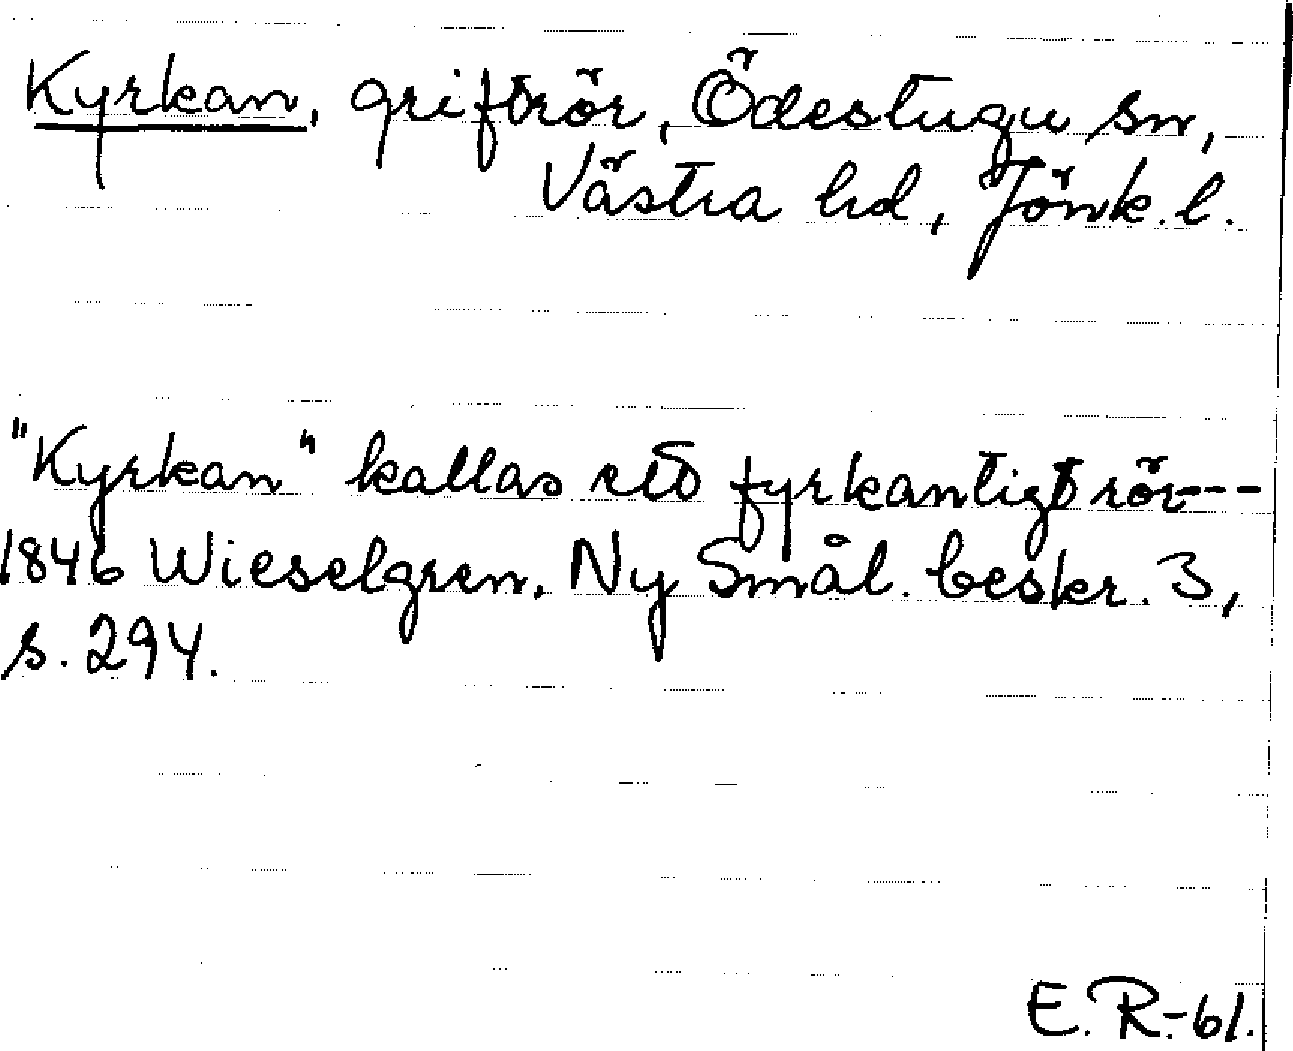 Kyrkan, griftrör, Ödestugu sn,
Västra hd, Jönk. l.
"Kyrkan" kallas ett fyrkantigt rör---
1846 Wieselgren. Ny Smål. beskr. 3,
s. 294.
E. R.-61.